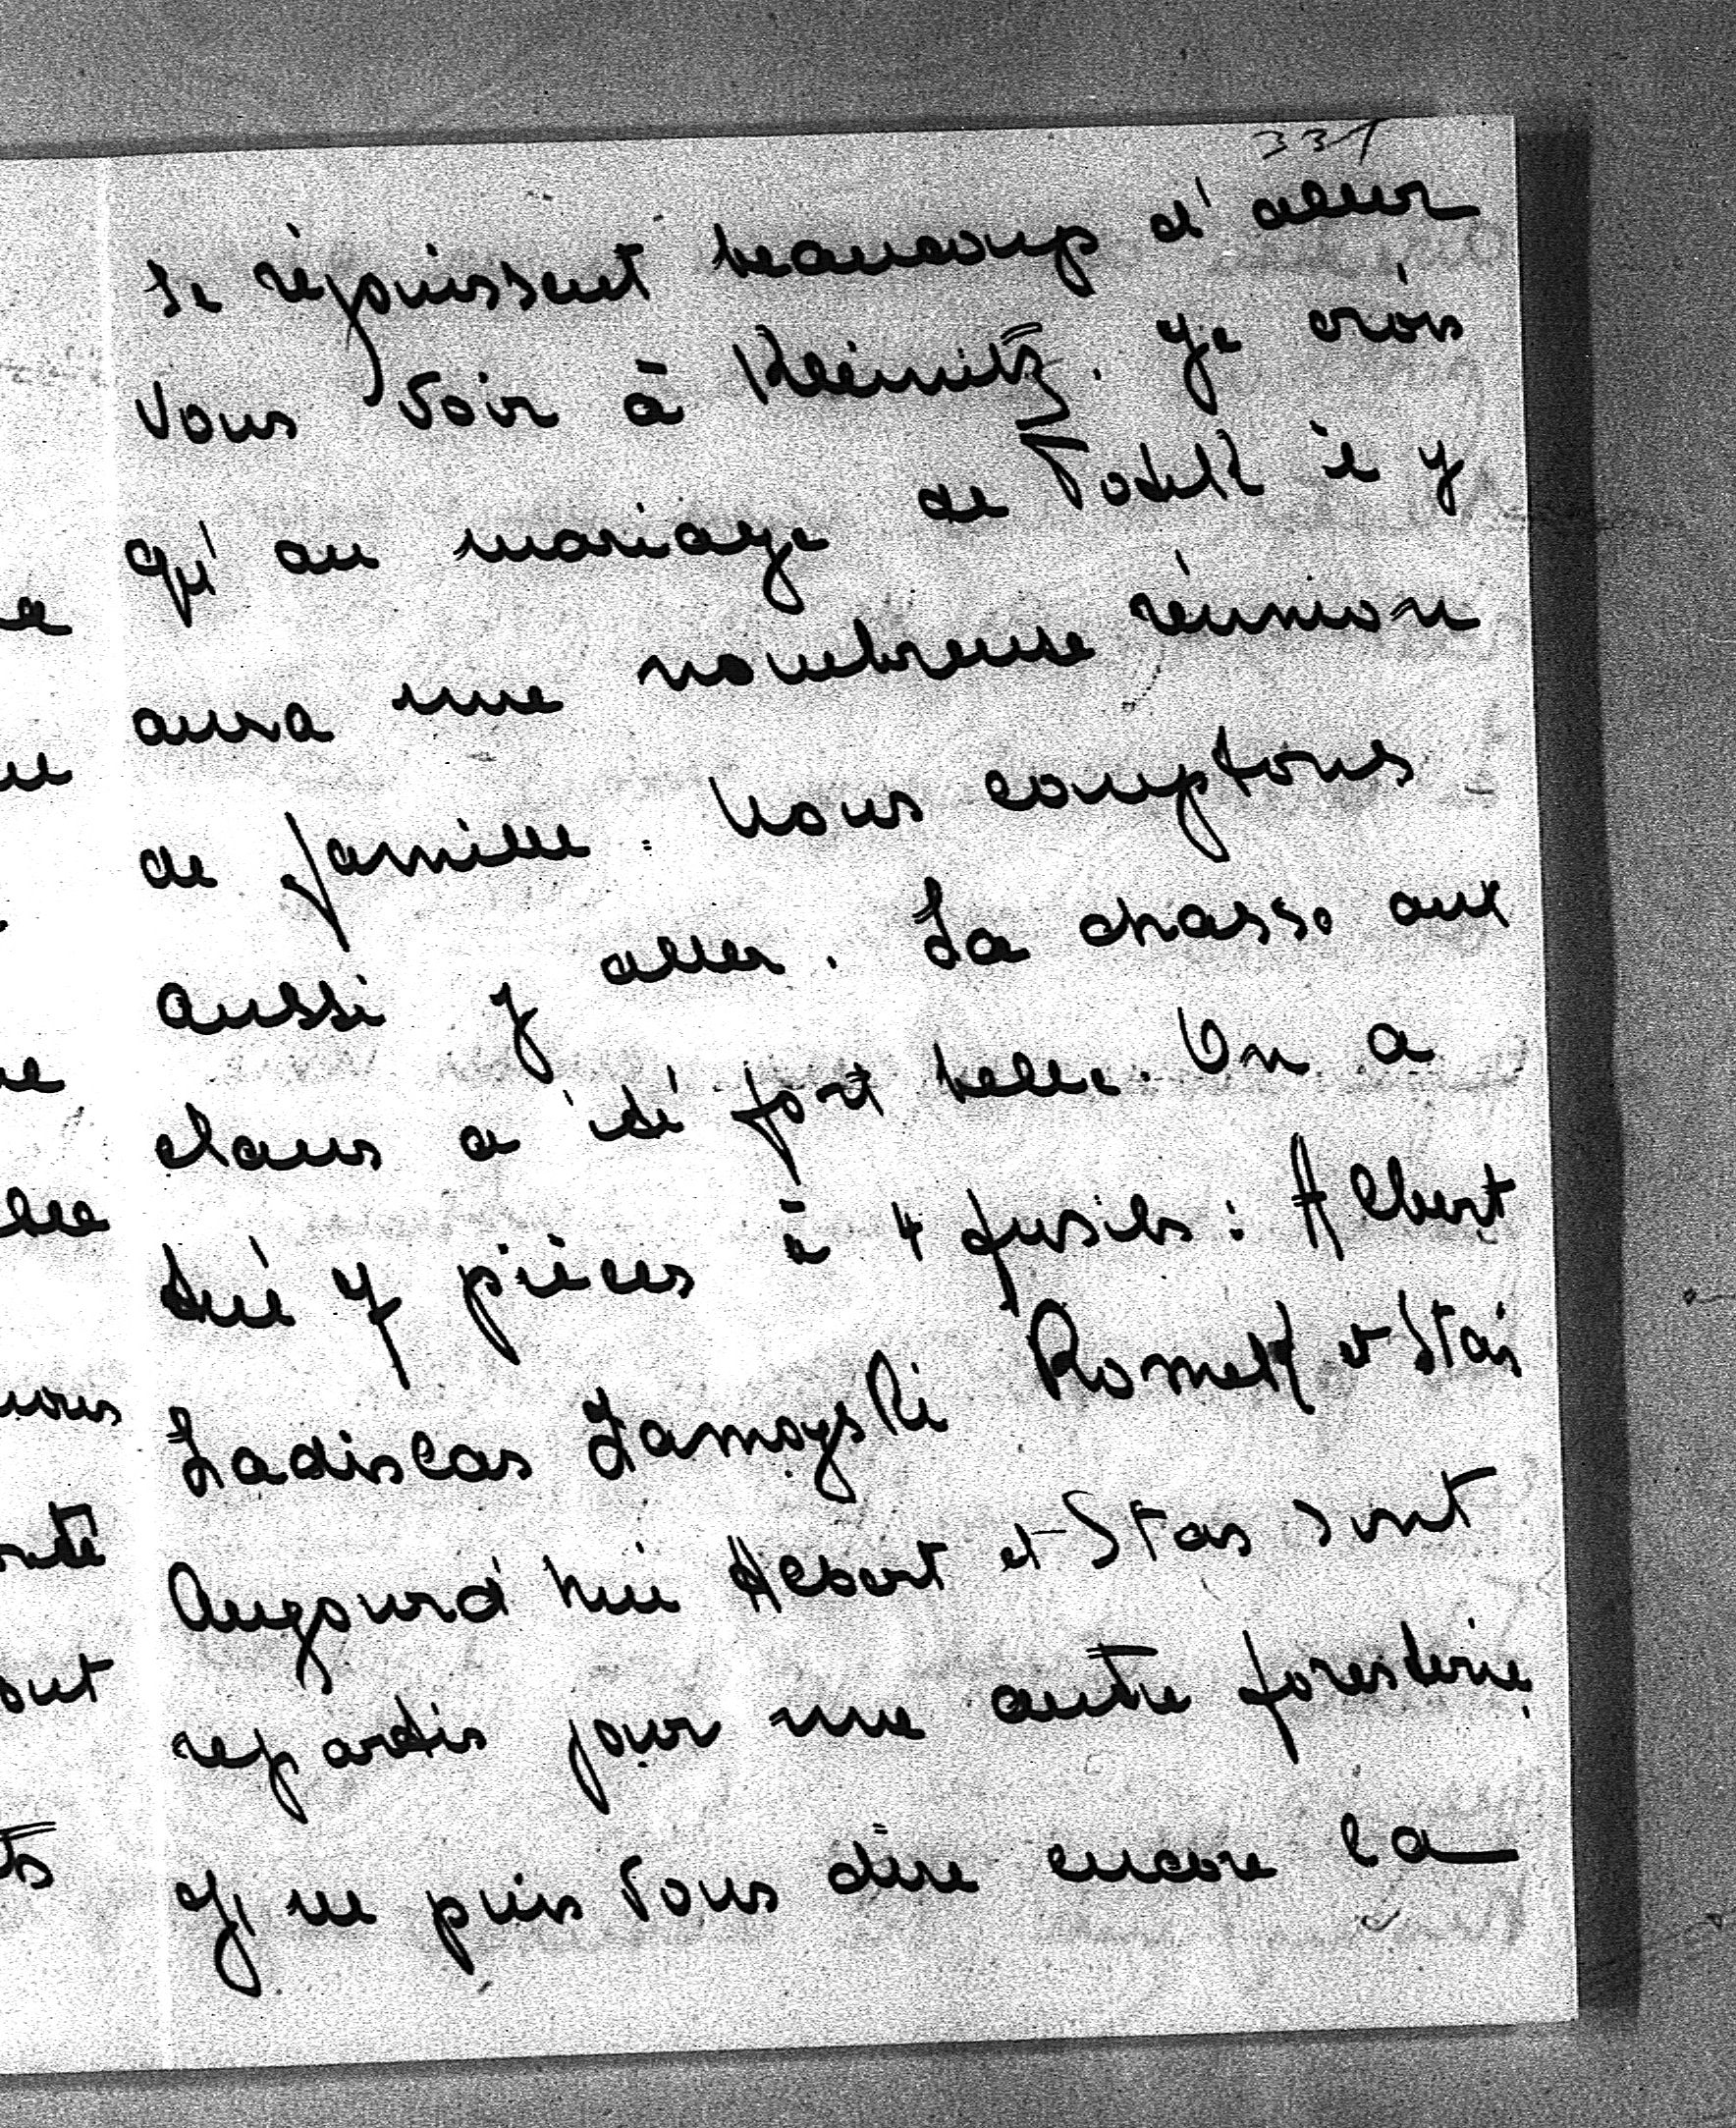 331
se réjouissent beaucoup d'aller
vous voir à Kleinitz. Je crois
qu'au mariage de il y
aura une nombreuse réunion
de famille. Nous comptons
aussi y aller. La chasse aux
élans a été fort belle. On a
tué 7 pièces à 4 fusils : Albert
Ladislas Zamoyski Romek et Staś
Aujourd'hui Albert et Stas sont
repartis pour une autre foresterie
Je ne puis vous dire encore la